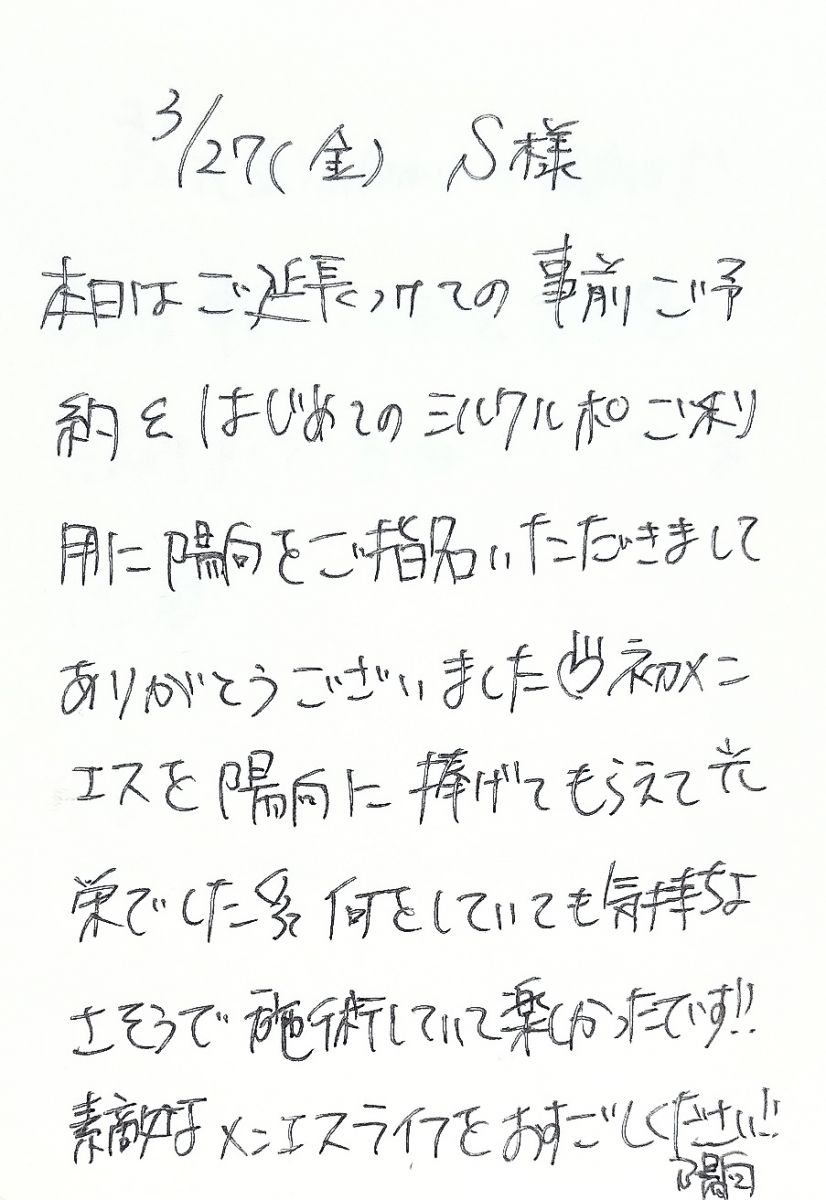 3/27(金) S様
本日はご延長つけての事前ご予
約とはじめてのミルクルポご利
用に陽向をご指名いただきまして
ありがとうございました 初メン
エスを陽向に捧げてもらえて光
栄でした 何をしていても気持ちよ
さそうで施術していて楽しかったです!!
素敵なメンエスライフをおすごしください!!
陽向